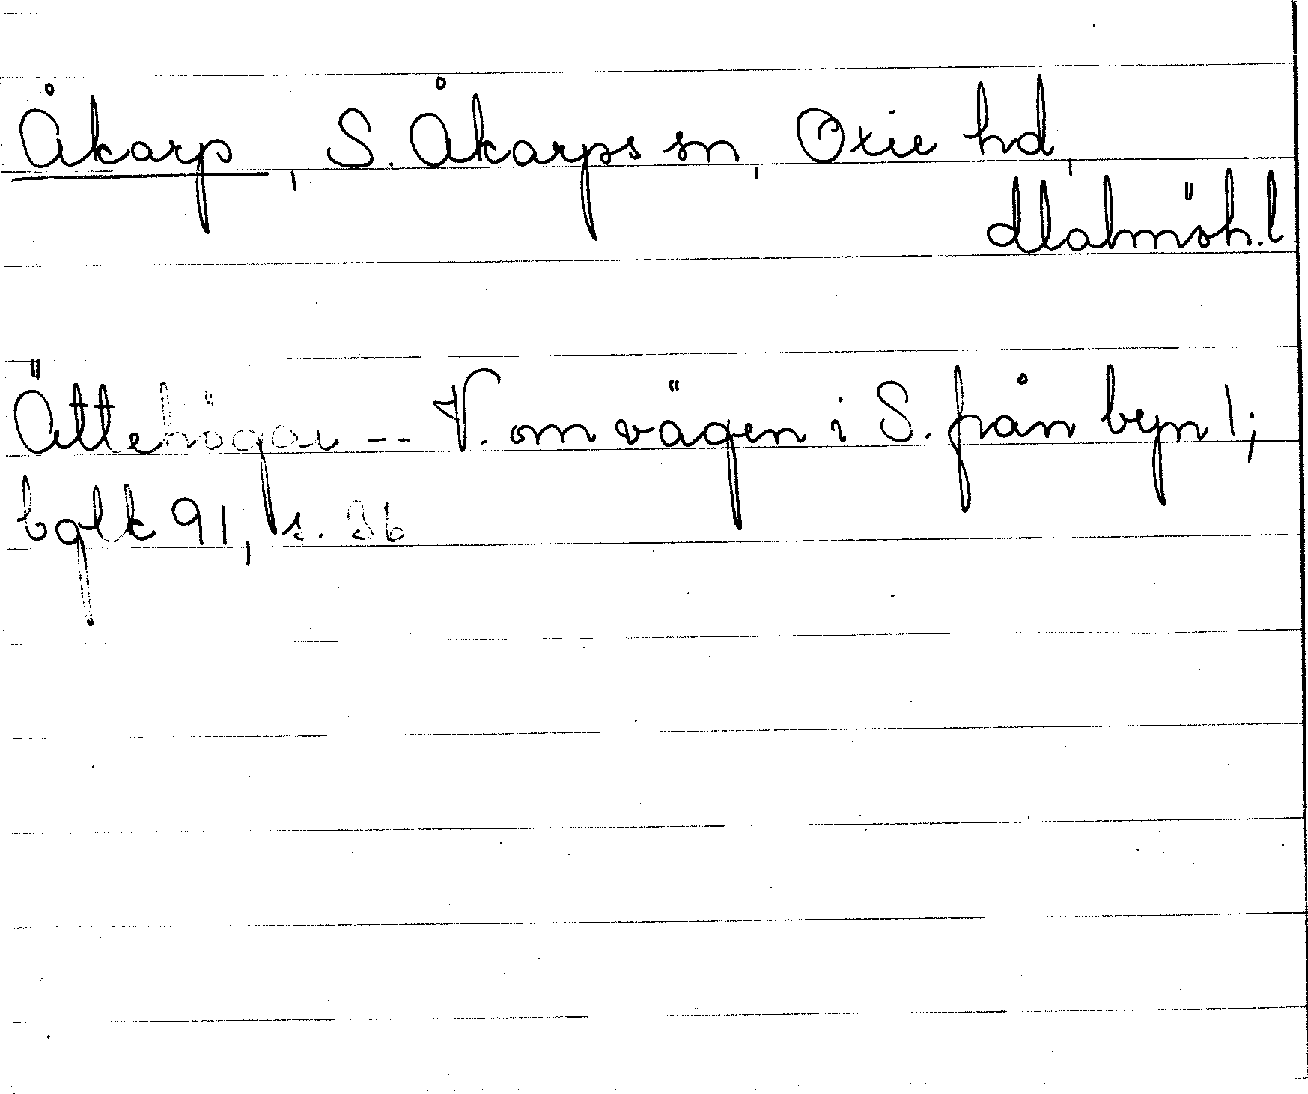 Åkarp, S. Åkarps sn, Oxie hd,
Malmöh.l
Ättehögar -- V. om vägen i S. från byn!;
bglk 91, s. 36